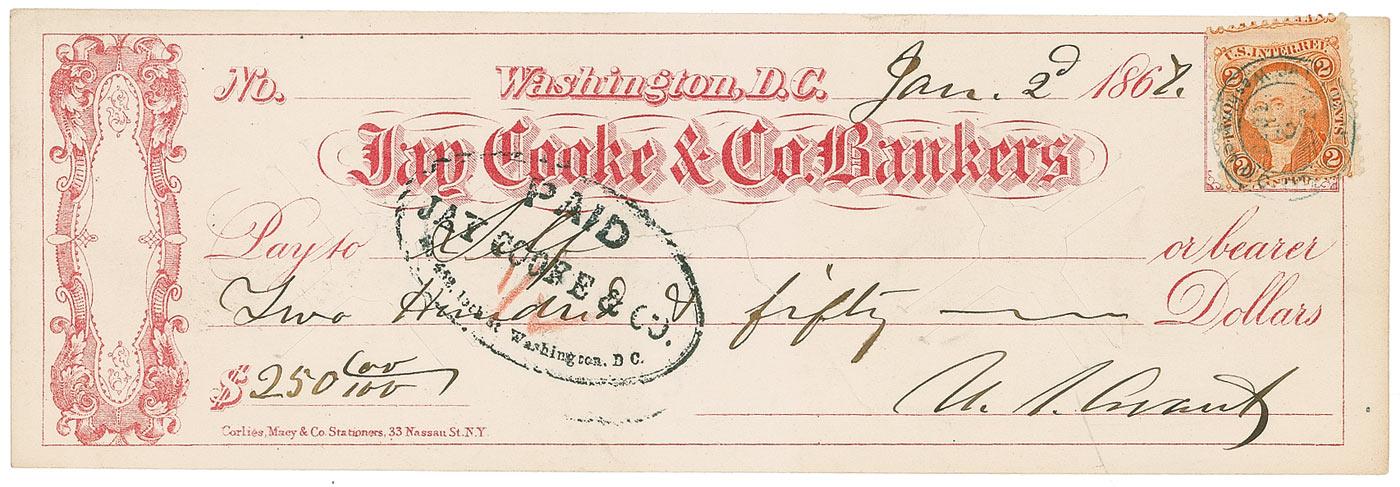 No. Washington, D.C. Jan. 2d 1868.
Jay Cooke & Co. Bankers
Pay to Self or bearer
Two Hundred & fifty Dollars
$250 00/100
U. S. Grant
Corlies, Macy & Co. Stationers, 33 Nassau St. N.Y.
U.S. INTER. REV.
2 CENTS 2
2 2
PAID
JAY COOKE & CO.
Washington, D C.